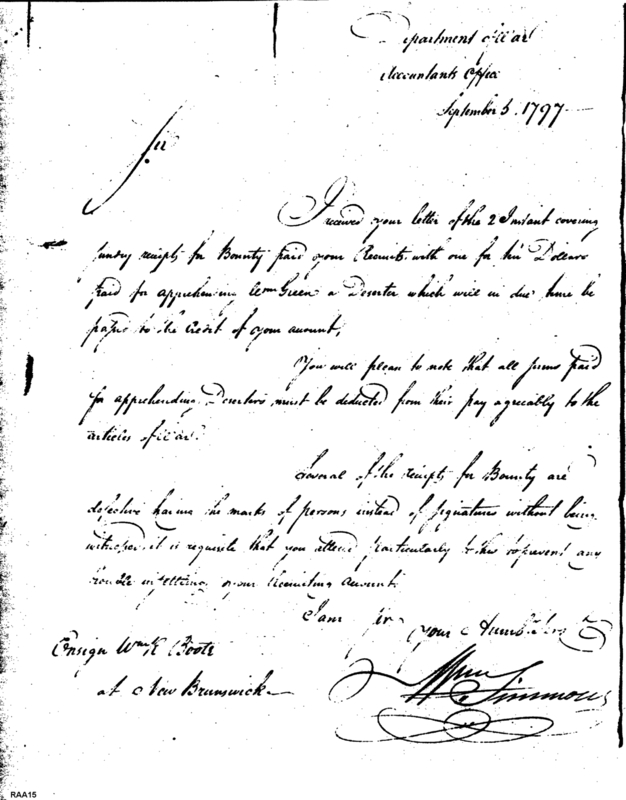 Department of War
Accountants Office
September 5. 1797
Sir
I received your letter of the 2 Instant covering
sundry receipts for Bounty paid your Recruits with one for ten Dollars
paid for apprehending Wm Green a Deserter which will in due time be
passed to the Credit of your account,
You will please to note that all sums paid
for apprehending Deserters must be deducted from their pay agreeably to the
articles of War.
Several of the receipts for Bounty are
defective having the marks of persons instead of signatures without being
witnessed, it is requisite that you attend particularly to this to prevent any
trouble in settling your Recruiting Account.
I am Sir
your Humble Srvt
Ensign Wm K Boote
at New Brunswick
Wm Simmons
RAA15